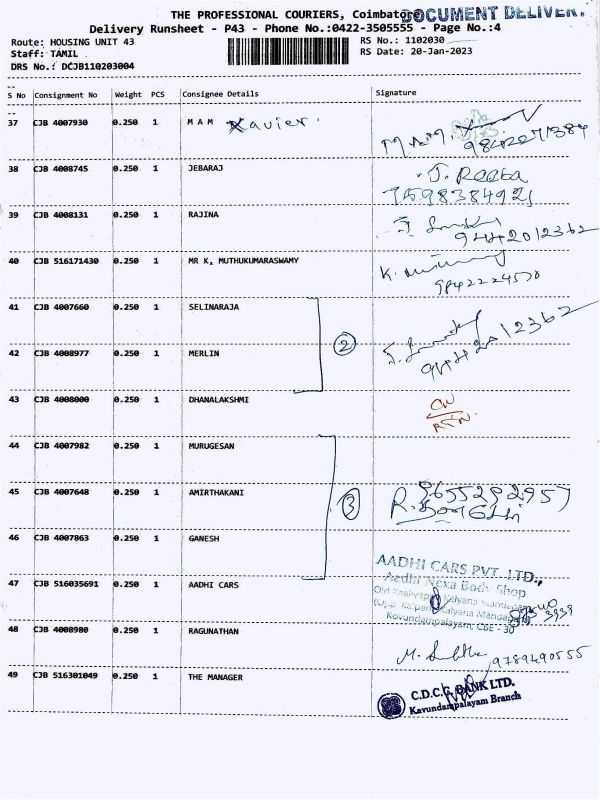 THE PROFESSIONAL COURIERS, Coimbatore
DOCUMENT DELIVERY
Delivery Runsheet - P43 - Phone No.:0422-3505555 - Page No.:4
Route: HOUSING UNIT 43
RS No.: 1102030
Staff: TAMIL
RS Date: 20-Jan-2023
DRS No.: DCJB110203004
S No Consignment No Weight PCS Consignee Details Signature
37 CJB 4007930 0.250 1 M A M Xavier. M.A.M.
38 CJB 4008745 0.250 1 JEBARAJ J. Reeba
7598384921
39 CJB 4008131 0.250 1 RAJINA
9442012362
40 CJB 516171430 0.250 1 MR K. MUTHUKUMARASWAMY
9842224570
41 CJB 4007660 0.250 1 SELINARAJA
2 9442012362
42 CJB 4008977 0.250 1 MERLIN
43 CJB 4008000 0.250 1 DHANALAKSHMI
RTN.
44 CJB 4007982 0.250 1 MURUGESAN
45 CJB 4007648 0.250 1 AMIRTHAKANI 3 9655292957
46 CJB 4007863 0.250 1 GANESH
AADHI CARS PVT. LTD.,
Aadhi Nexa Body Shop
47 CJB 516035691 0.250 1 AADHI CARS
Kalyana Mandapam
Kovundampalayam, CBE - 30
48 CJB 4008980 0.250 1 RAGUNATHAN
9789490555
49 CJB 516301049 0.250 1 THE MANAGER
C.D.C.C. BANK LTD.
Kavundampalayam Branch